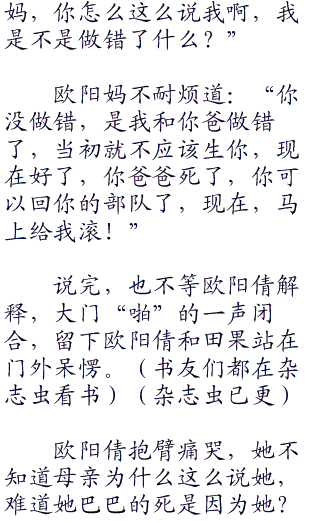 妈，你怎么这么说我啊，我
是不是做错了什么？”
欧阳妈不耐烦道：“你
没做错，是我和你爸做错
了，当初就不应该生你，现
在好了，你爸爸死了，你可
以回你的部队了，现在，马
上给我滚！”
说完，也不等欧阳倩解
释，大门“啪”的一声闭
合，留下欧阳倩和田果站在
门外呆愣。（书友们都在杂
志虫看书）（杂志虫已更）
欧阳倩抱臂痛哭，她不
知道母亲为什么这么说她，
难道她巴巴的死是因为她？